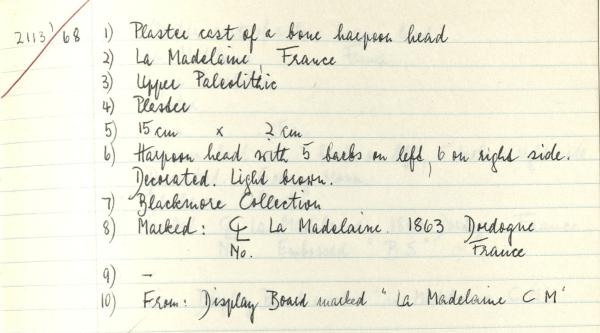 2113/68 1) Plaster cast of a bone harpoon head
2) La Madelaine, France
3) Upper Paleolithic
4) Plaster
5) 15 cm x 2 cm
6) Harpoon head with 5 barbs on left, 6 on right side.
Decorated. Light brown.
7) Blackmore Collection
8) Marked: La Madelaine. 1863 Dordogne
No. France
9) -
10) From: Display Board marked "La Madelaine C M"